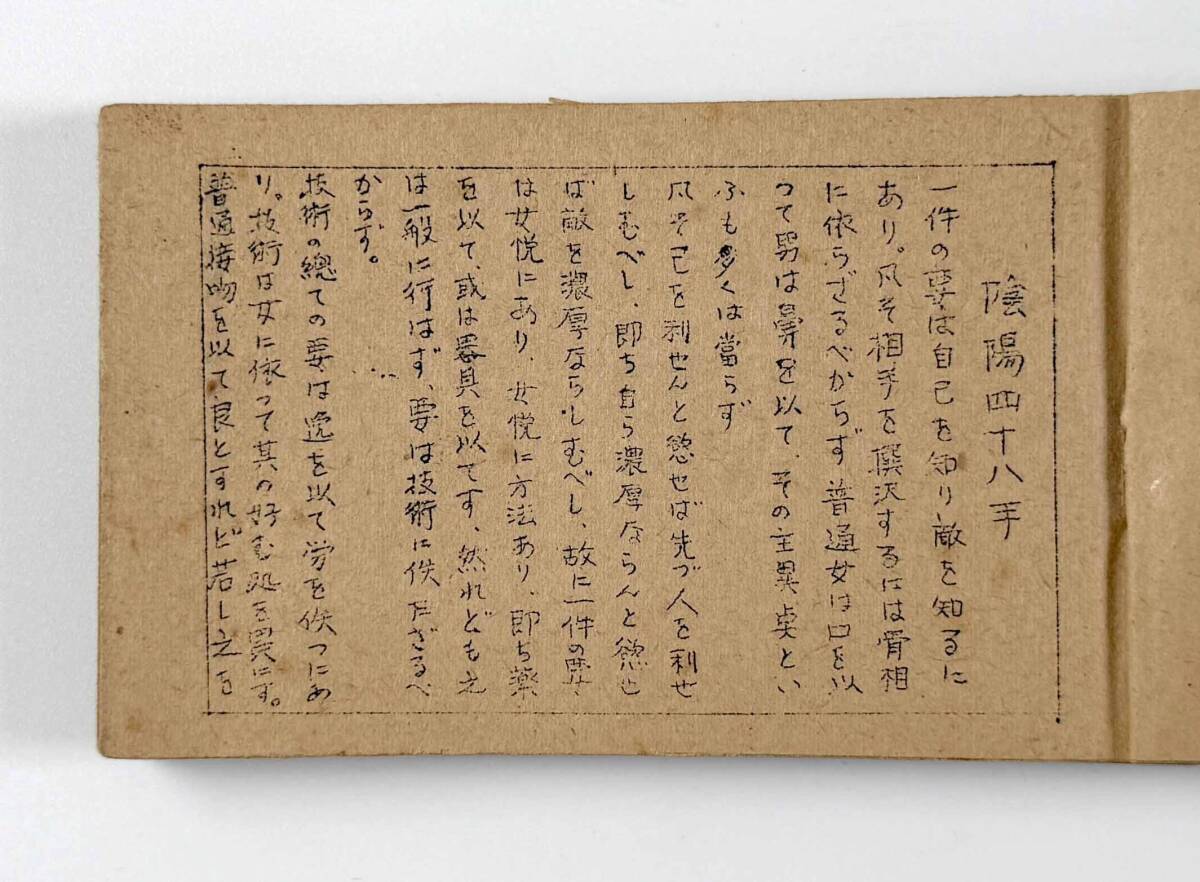 陰陽四十八手
一件の要は自己を知り敵を知るに
あり。凡そ相手を撰沢するには骨相
に依らざるべからず普通女は口を以
つて男は鼻を以て、その主異とい
ふも多くは當らず
凡そ己を利せんと慾せば先づ人を利せ
しむべし、即ち自ら濃厚ならんと慾せ
ば敵を濃厚ならしむべし、故に一件の要
は女悦にあり、女悦に方法あり、即ち薬
を以て、或は器具を以てす、然れども之
は一般に行はず、要は技術に俟たざるべ
からず。
技術の總ての要は逸を以て労を俟つにあ
り。技術は女に依って其の好む処を異にす。
普通接吻を以て良とすれど若し之を